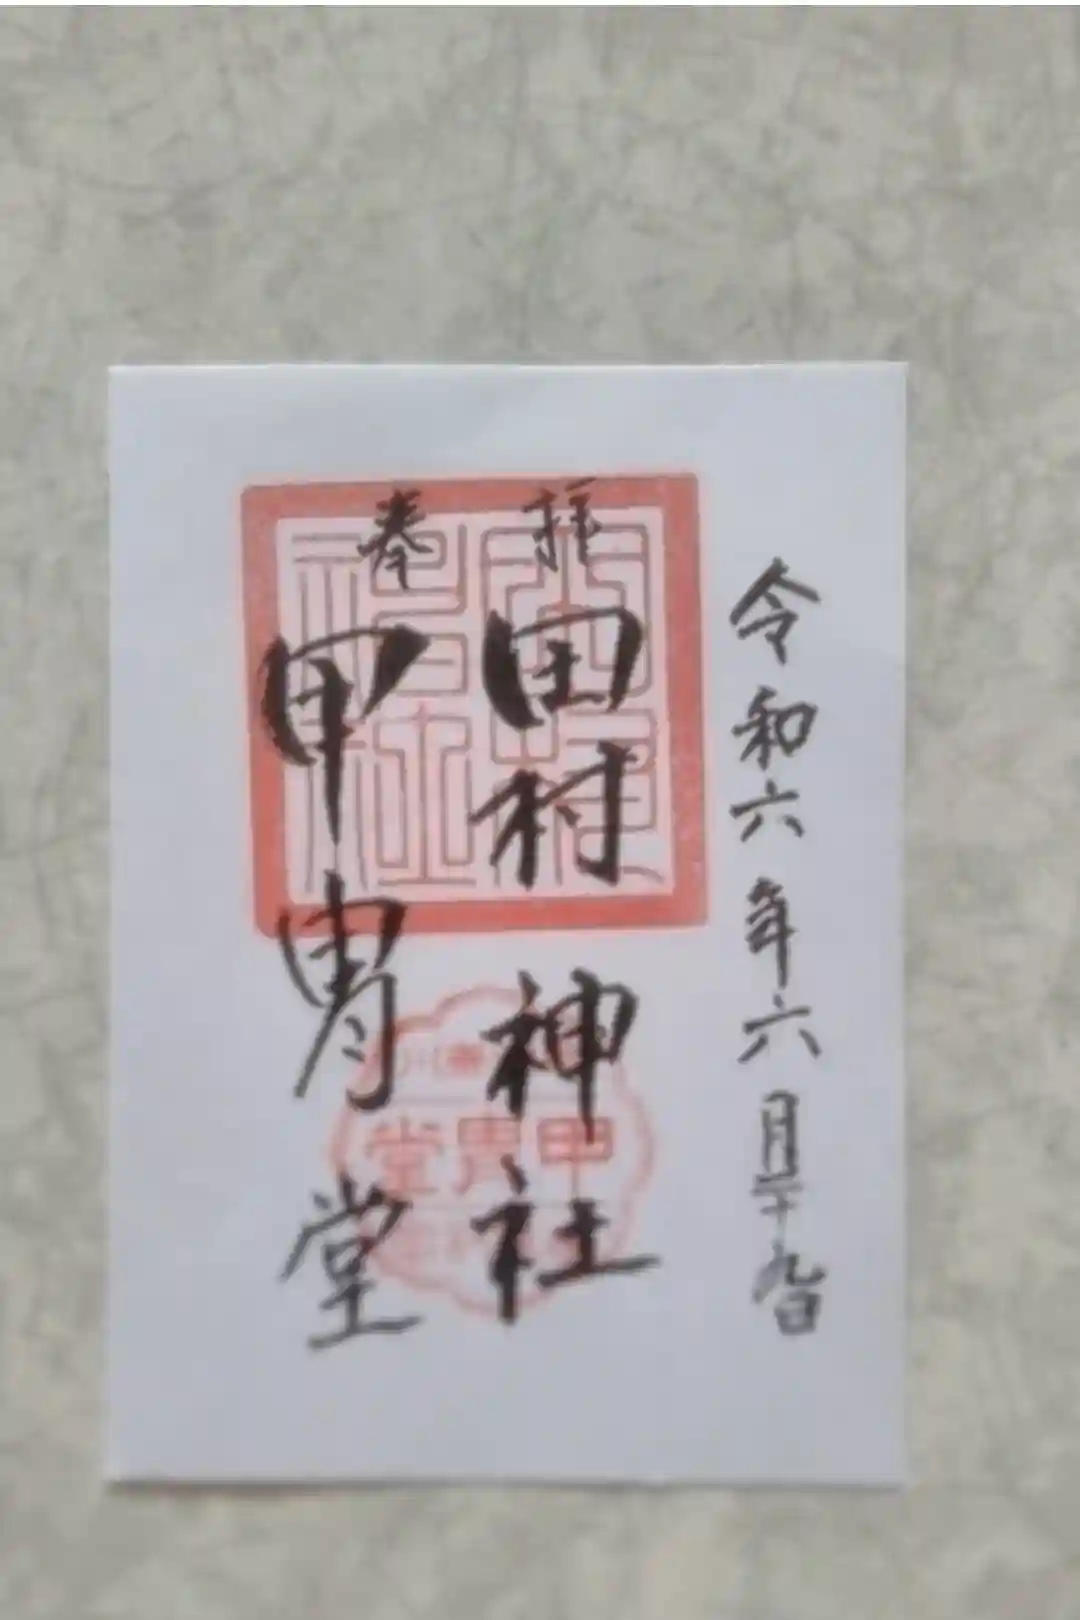 令和六年六月二十九日
奉拝
田村神社
甲冑堂
甲冑堂